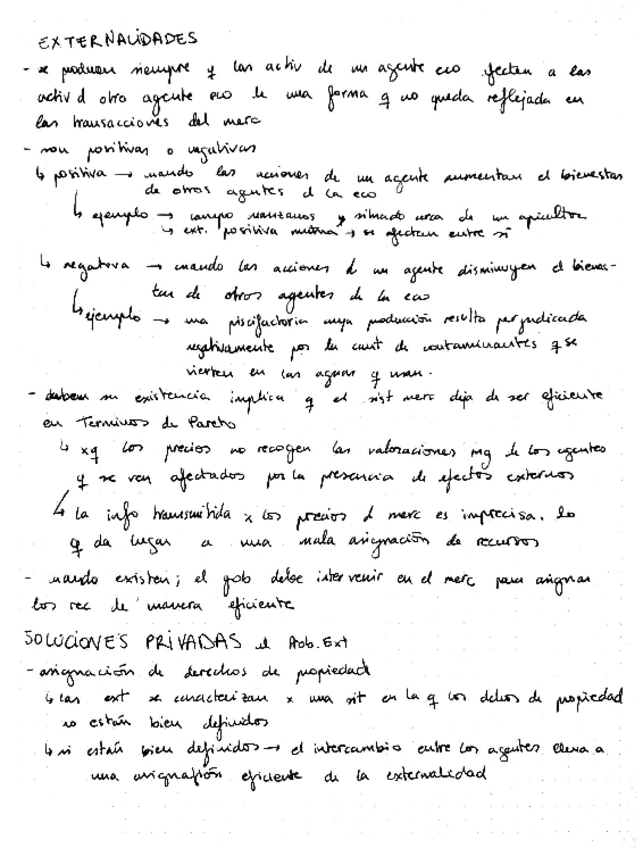 EXTERNALIDADES
- se producen siempre q las activ de un agente eco afectan a las
activ d otro agente eco de una forma q no queda reflejada en
las transacciones del merc
- son positivas o negativas
↳ positiva → cuando las acciones de un agente aumentan el bienestar
de otros agentes d la eco
↳ ejemplo → campo manzanos y situado cerca de un apicultor
↳ ext. positiva mutua → se afectan entre sí
↳ negativa → cuando las acciones d un agente disminuyen el bienes-
tar de otros agentes de la eco
↳ ejemplo → una piscifactoria cuya producción resulta perjudicada
negativamente por la cant de contaminantes q se
vierten en las aguas q usan.
- su existencia implica q el sist merc deja de ser eficiente
en Terminos de Pareto
↳ xq los precios no recogen las valoraciones mg de los agentes
q se ven afectados por la presencia de efectos externos
↳ la info transmitida x los precios d merc es imprecisa. lo
q da lugar a una mala asignación de recursos
- cuando existen; el gob debe intervenir en el merc para asignar
los rec de manera eficiente
SOLUCIONES PRIVADAS Prob. Ext
- asignación de derechos de propiedad
↳ las ext se caracterizan x una sit en la q los dchos de propiedad
no están bien definidos
↳ si están bien definidos → el intercambio entre los agentes lleva a
una asignación eficiente de la externalidad